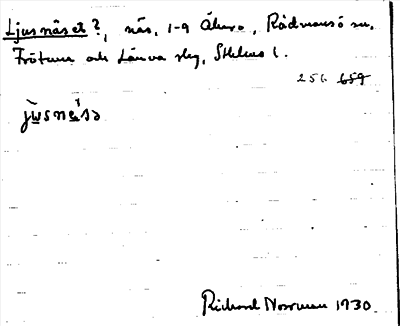 Ljusnäset?, näs, 1-9 Åkerö, Rådmansö sn,
Frötuna och Länna slg, Sthlms l.
256 659
jùsnè̤sə
Richard Norrman 1930.